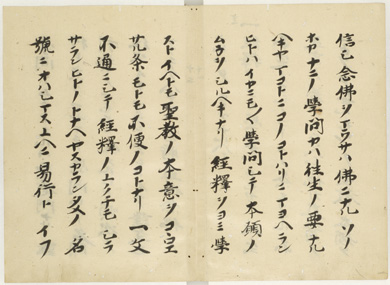 信シ念佛ヲマウサハ佛ニナルソノ
ホカナニノ學問カハ往生ノ要ナル
ヘキヤマコトニコノコトハリニマヨヘラン
ヒトハイカニモ〱學問シテ本願ノ
ムネヲシルヘキナリ經釋ヲヨミ學
ストイヘトモ聖教ノ本意ヲコヽロエ
サル条モトモ不便ノコトナリ一文
不通ニシテ經釋ノユクチモシラ
サランヒトノトナヘヤスカランタメノ名
號ニオハシマスユヘニ易行トイフ